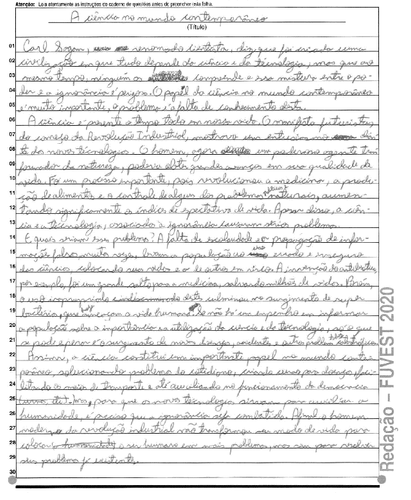 Atenção: Leia atentamente as instruções do caderno de questões antes de preencher esta folha.
A ciência no mundo contemporâneo
(Título)
01 Carl Sagan, renomado cientista, diz que foi criada uma
02 civilização em que tudo depende da ciência e da tecnologia, mas que ao
03 mesmo tempo, ninguém as compreende e essa mistura entre o po-
04 der e a ignorância é perigosa. O papel da ciência no mundo contemporâneo
05 é muito importante, o problema é a falta de conhecimento desta.
06 A ciência é presente o tempo todo em nossa vida. O manifesto futurista,
07 do começo da Revolução Industrial, mostrava um entusiasmo dian-
08 te da nova tecnologia. O homem, agora um poderoso agente trans-
09 formador da natureza, poderia obter grandes avanços em sua qualidade de
10 vida. Foi um processo importante, pois revolucionou a medicina, a produ-
11 ção de alimentos e o controle de alguns dos problemas naturais, aumen-
12 tando significamente o índice de expectativa de vida. Apesar disso, a ciên-
13 cia e a tecnologia, associadas à ignorância causaram sérios problemas.
14 E quais seriam esses problemas? A falta de escolaridade e a propagação de infor-
15 mações falsas, muitas vezes, levam a população ao errado e inseguro
16 das ciências, colocando suas vidas e as de outros em riscos. A invenção do antibiótico,
17 por exemplo, foi um grande salto para a medicina, salvando milhares de vidas. Porém,
18 o uso inapropriado deste culminou no surgimento de super
19 bactérias, que ameaçam a vida humana. Se não há um empenho em informar
20 a população sobre a importância e a utilização da ciência e da tecnologia, o que
21 se pode esperar é o surgimento de novas doenças, acidentes e outras
22 Assim, a ciência constitui um importante papel no mundo contem-
23 porâneo, solucionando problemas do cotidiano, criando curas para doenças, faci-
24 litando os meios de transporte e até auxiliando no funcionamento da democracia
25 para que as novas tecnologias sirvam para auxiliar a
26 humanidade, é preciso que a ignorância seja combatida. Afinal o homem
27 moderno, da revolução industrial não transformou seu modo de vida para
28 colocar o ser humano em mais problemas, mas sim para resolver
29 seus problemas já existentes.
30
Redação – FUVEST 2020